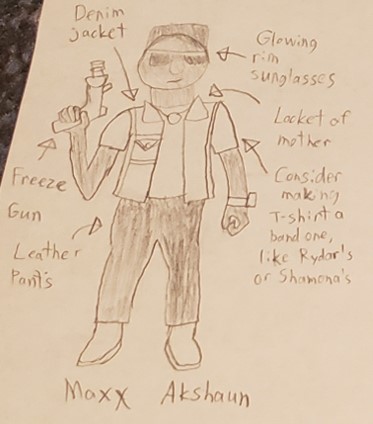 Denim
jacket
Glowing
rim
sunglasses
Locket of
mother
Freeze
Gun
Consider
making
T-shirt a
band one,
like Rydar's
or Shamona's
Leather
Pants
Maxx Akshaun